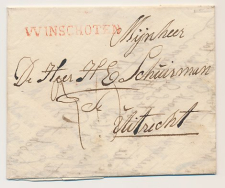 WINSCHOTEN
Mijnheer
De Heer H E Schuirman
te
Uitrecht